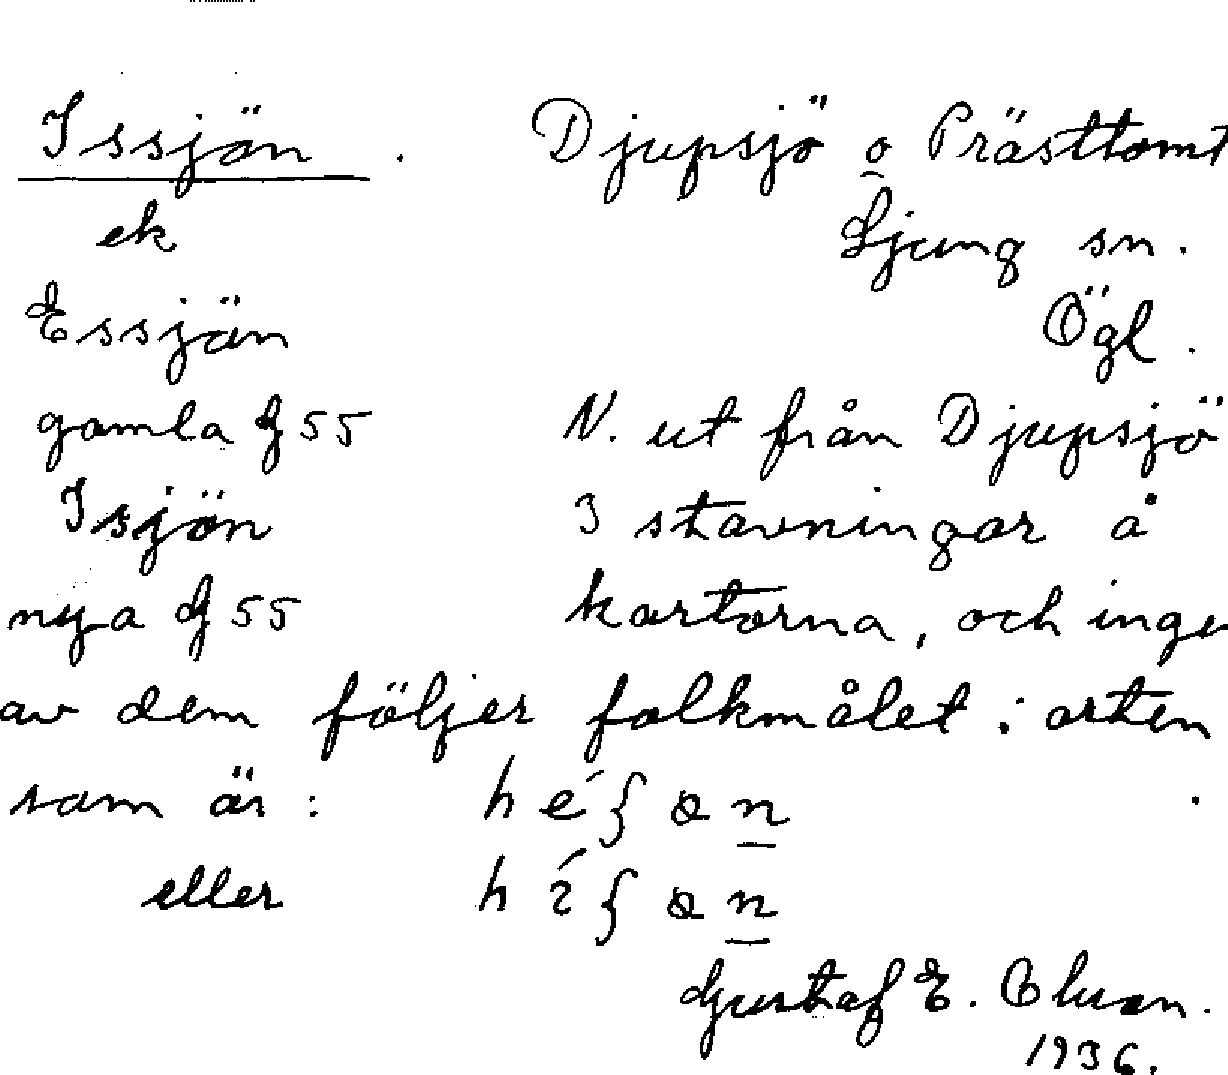 Issjön . Djupsjö o Prästtomt
ek Ljung sn.
Essjän Ögl.
gamla G 55 N. ut från Djupsjö
Isjön 3 stavningar å
nya G 55 kartorna, och inge
av dem följer folkmålet i orten
som är :
eller
Gustaf E.
1936.